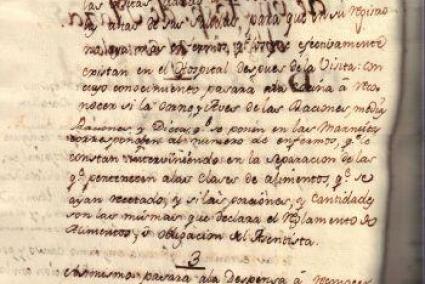 las Visitas de las Salas, para que en su Registro
no haya mas enfermos, qe. los que efectivamente
existan en el Hospital despues de la Visita: con
cuyo conocimiento pasará ala Cocina à reco-
nocer si la Carne, y Aves de las Raciones, media
Raciones, y Dietas, qe. se ponen en las Marmitas
corresponden al numero de enfermos, qe. se
constan interviniendo en la separacion de las
qe. pertenecen alas Clases de alimentos, qe. se
ayan recetado, y si las raciones, y Cantidades
son las mismas que declara el Reglamento de
Alimentos, ù obligacion del Asentista.
3
asimismo pasara ala Despensa à reconocer